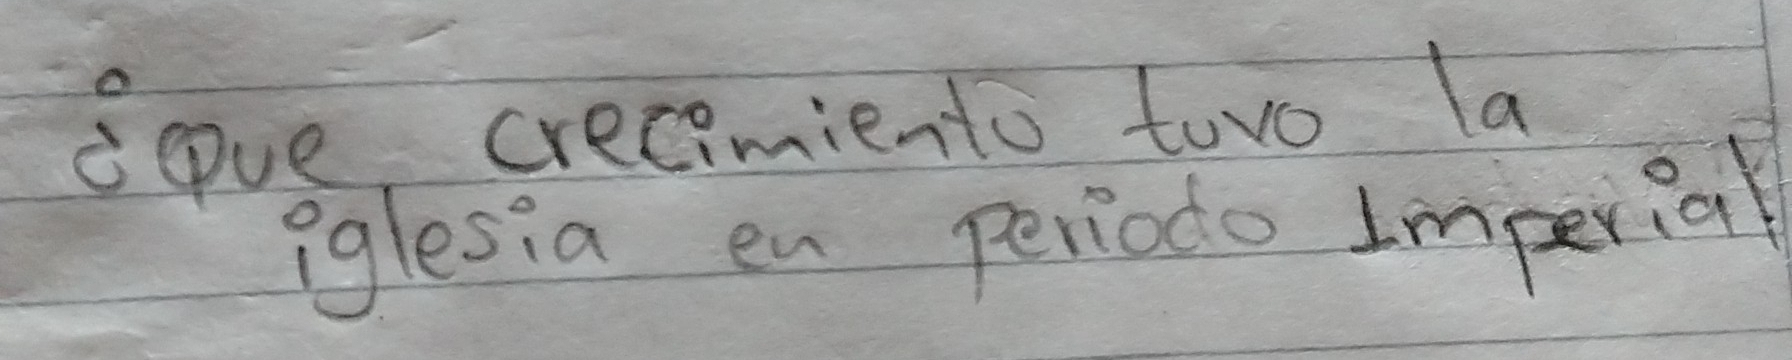 ¿Que crecimiento tuvo la
iglesia en periodo Imperial